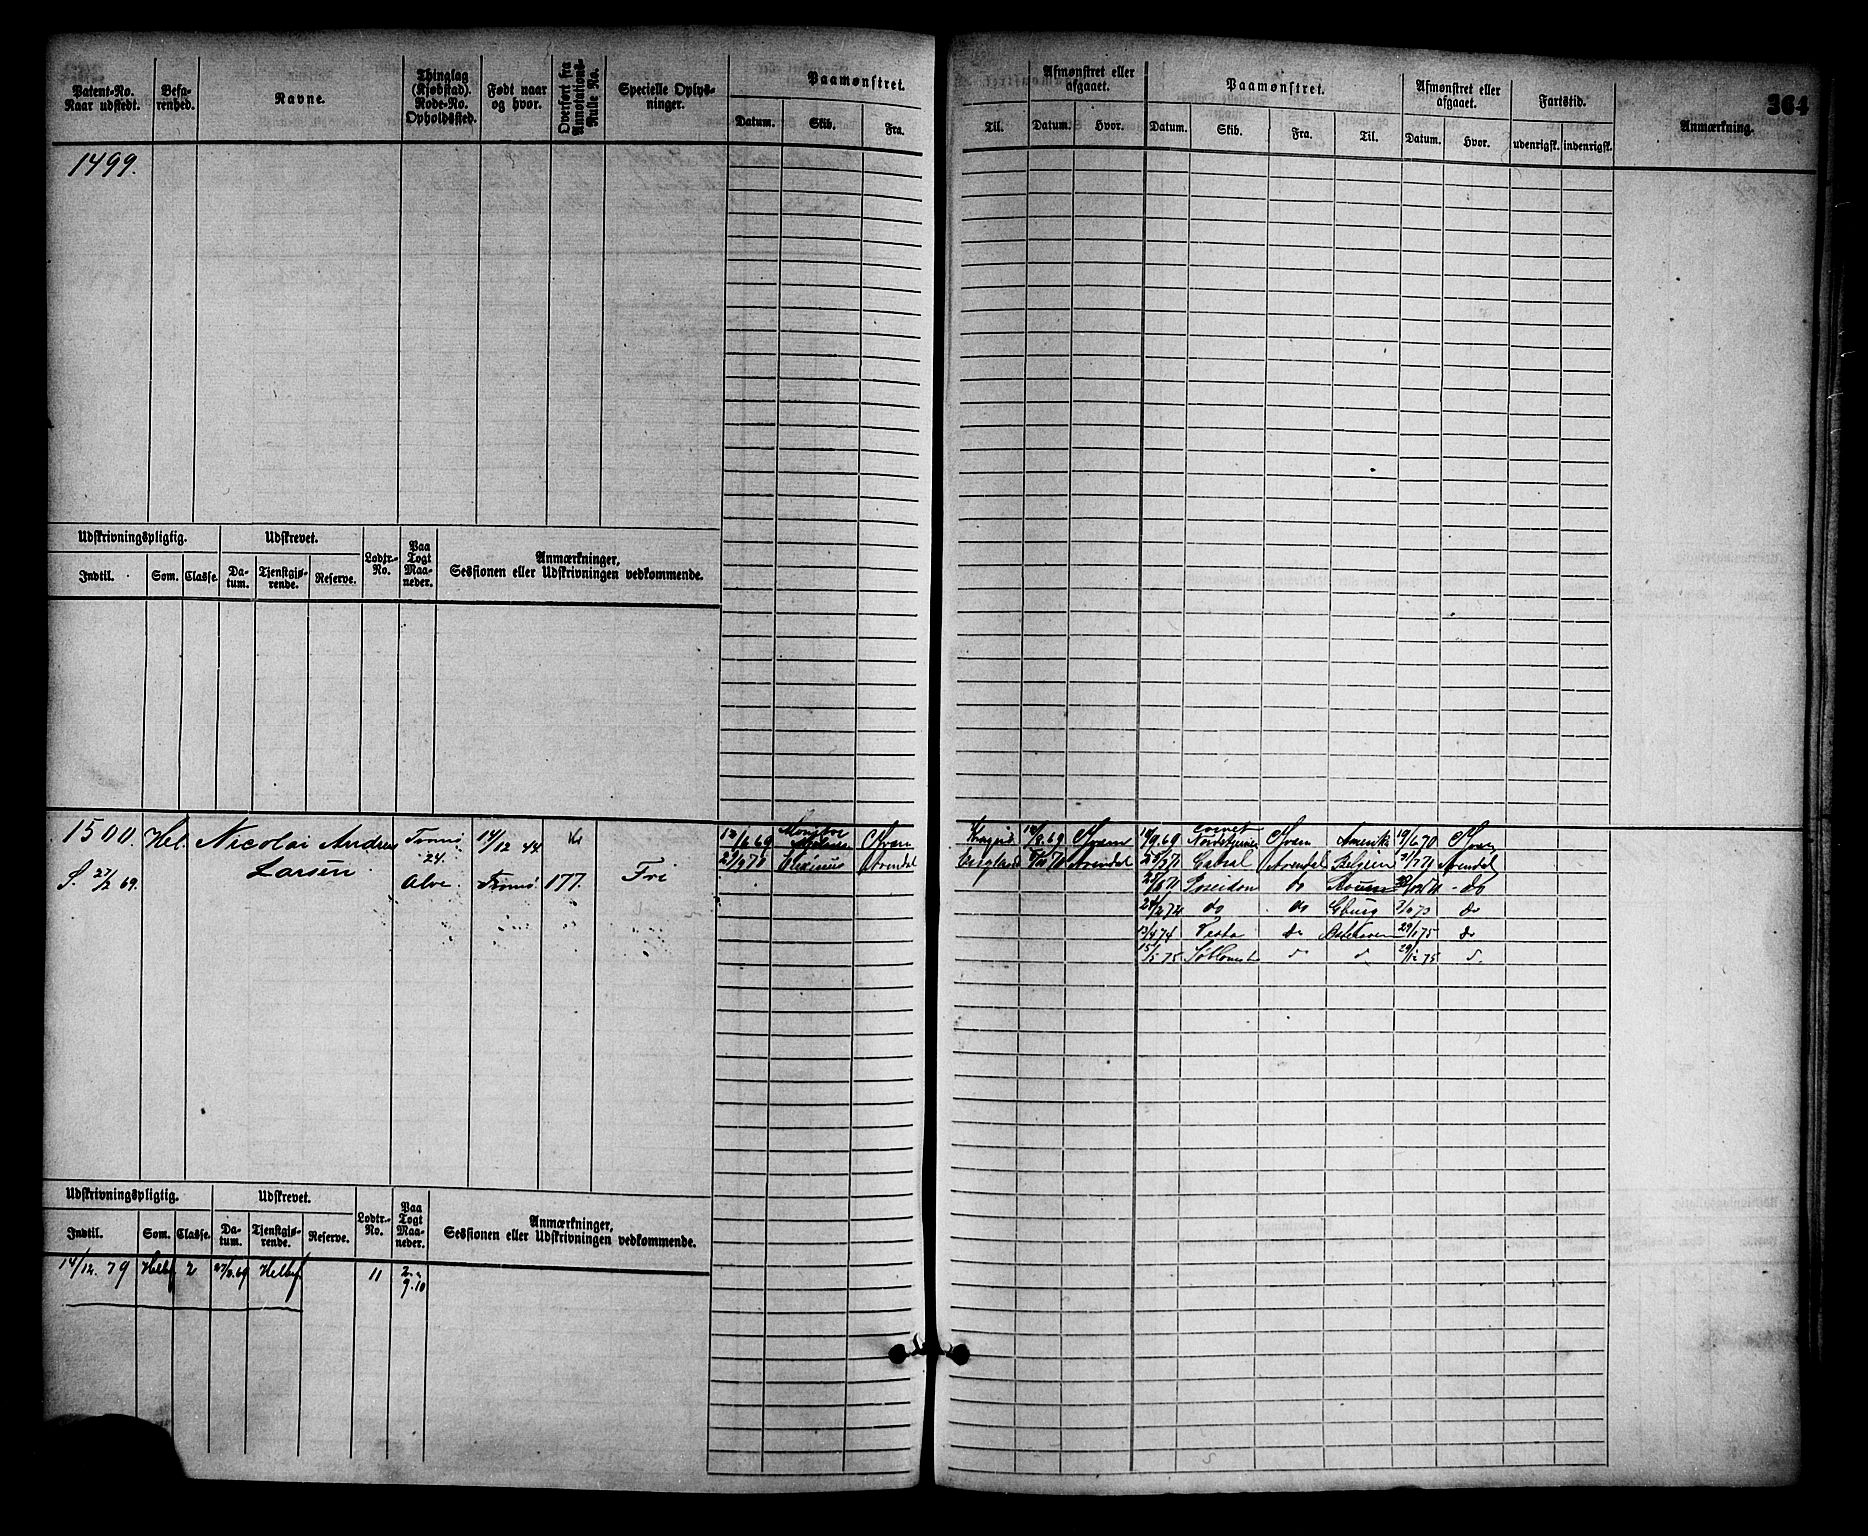 364
Patent-No. Naar udstedt.
Befarenhed.
Navne.
Thinglag (Kjøbstad). Rode-No. Opholdssted.
Født naar og hvor.
Overført fra Annotations-Rulle No.
Specielle Oplysninger.
Paamønstret.
Datum. Skib. Fra.
Til.
Afmønstret eller afgaaet.
Datum. Hvor.
Paamønstret.
Datum. Skib. Fra. Til.
Afmønstret eller afgaaet.
Datum. Hvor.
Fartstid.
udenrigsk. indenrigsk.
Anmærkning.
1499.
Udskrivningspligtig.
Indtil. Som. Classe.
Udskrevet.
Datum. Tjenstgjørende. Reserve.
Lodtr.-No.
Paa Togt Maaneder.
Anmærkninger,
Sessionen eller Udskrivningen vedkommende.
1500. Hel. Nicolai Andreas Tromø 14/12 44
Larsen 24.
S. 27/2 69. Alve. Tromø 177. Fri
12/6 69
Arendal
14/8 69
10/9 69 Nordstjernen Amerika 19/6 70
England Arendal
Gabriel Arendal Belgien Arendal
Poseidon do do
do do Gburg do
13/4 74 Vesta do Østersøen 29/1 75 do
75 29/12 75
Udskrivningspligtig.
Indtil. Som. Classe.
Udskrevet.
Datum. Tjenstgjørende. Reserve.
Lodtr.-No.
Paa Togt Maaneder.
Anmærkninger,
Sessionen eller Udskrivningen vedkommende.
14/12. 79 Helbf 2 27/2.69 Helbf. 11 2.
9.10